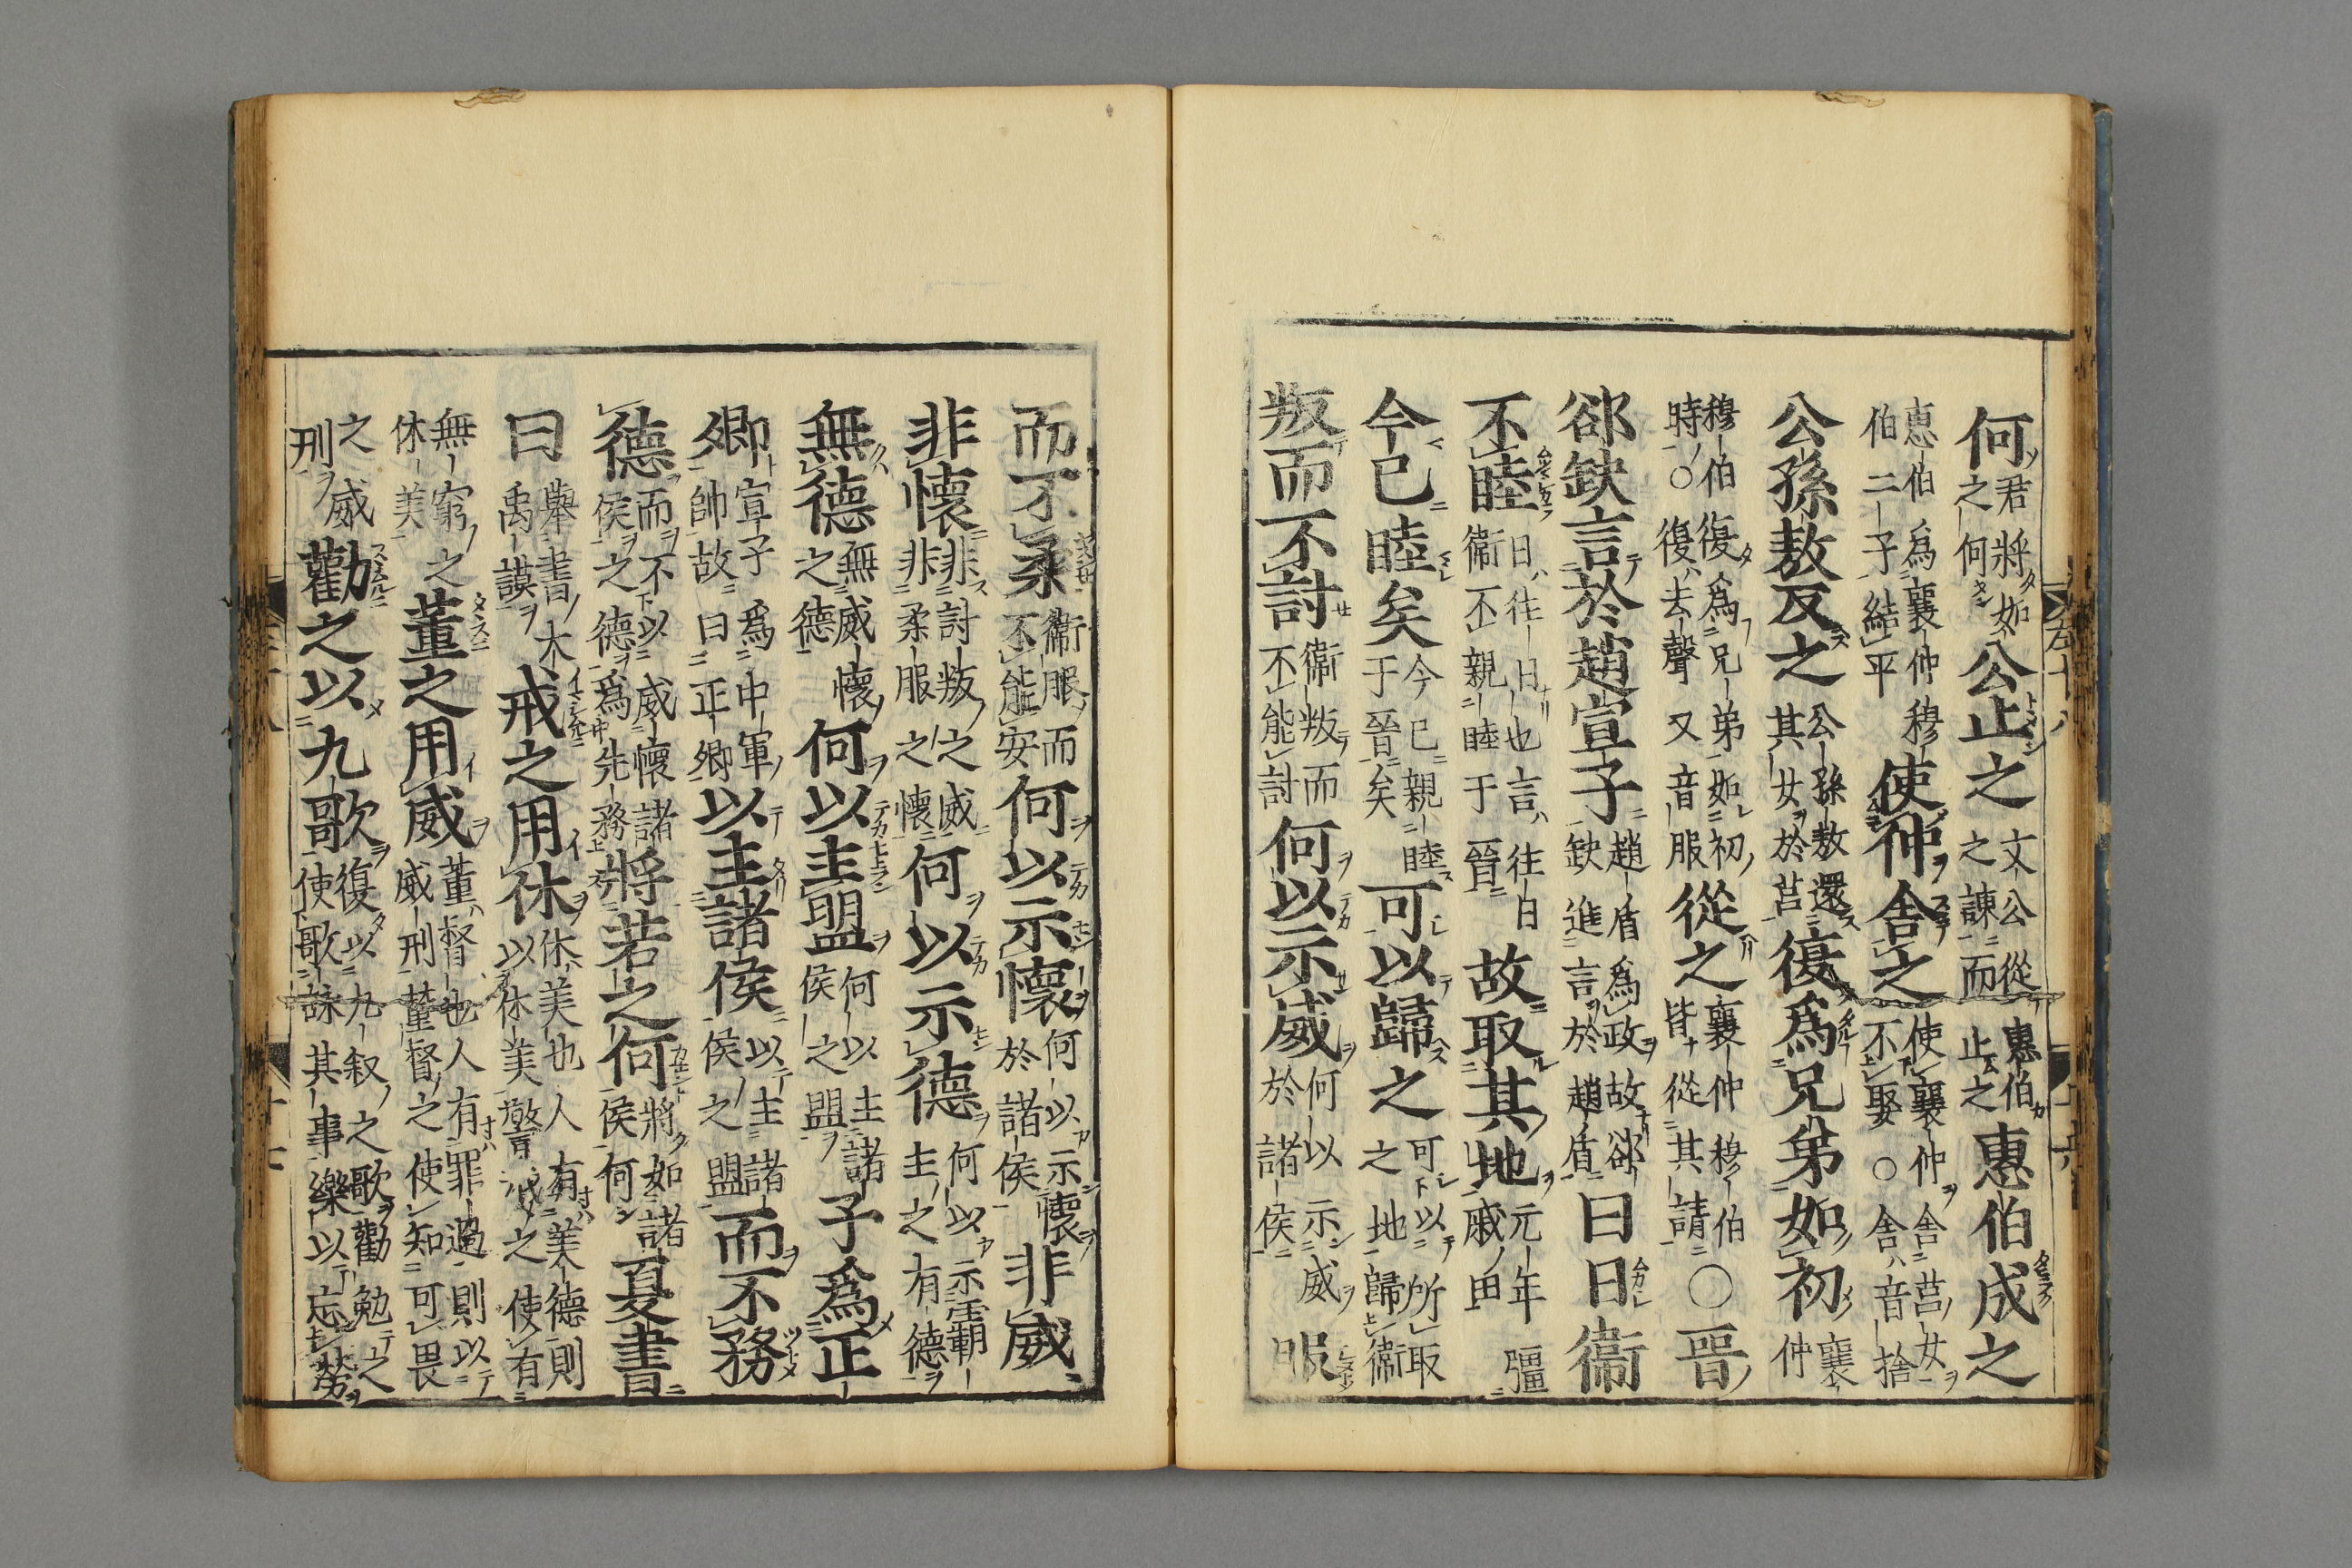 何君將如之何公止之文公從惠伯之諫而止之惠伯成之
惠伯爲襄仲穆伯二子結平使仲舍之使襄仲舍莒女不娶○舍音捨
公孫敖反之公孫敖還其女於莒復爲兄弟如初襄仲
穆伯復爲兄弟如初時○復去聲又音服從之襄仲穆伯皆從其請○晉
郤缺言於趙宣子趙盾爲政故郤缺進言於趙盾曰日衞
不睦日往日也言往日衞不親睦于晉故取其地元年彊戚田
今已睦矣今已親睦于晉矣可以歸之可以所取之地歸衞
叛而不討衞叛而不能討何以示威何以示威於諸侯服
而不柔衞服而不能安何以示懷何以示懷於諸侯非威
非懷非討叛之威非柔服之懷何以示德何以示霸主之有德
無德無威懷之德何以主盟何以主諸侯之盟子爲正
卿宣子爲中軍帥故曰正卿以主諸侯以主諸侯之盟而不務
德而不以威懷諸侯之德爲先務將若之何將如諸侯何夏書
曰擧書大禹謨戒之用休休美也人有美德則以休美警戒之使有
無窮之休美董之用威董督也人有罪過則以威刑董督之使知可畏
之威刑勸之以九歌復以九叙之歌勸勉之使歌詠其事樂以忘勞